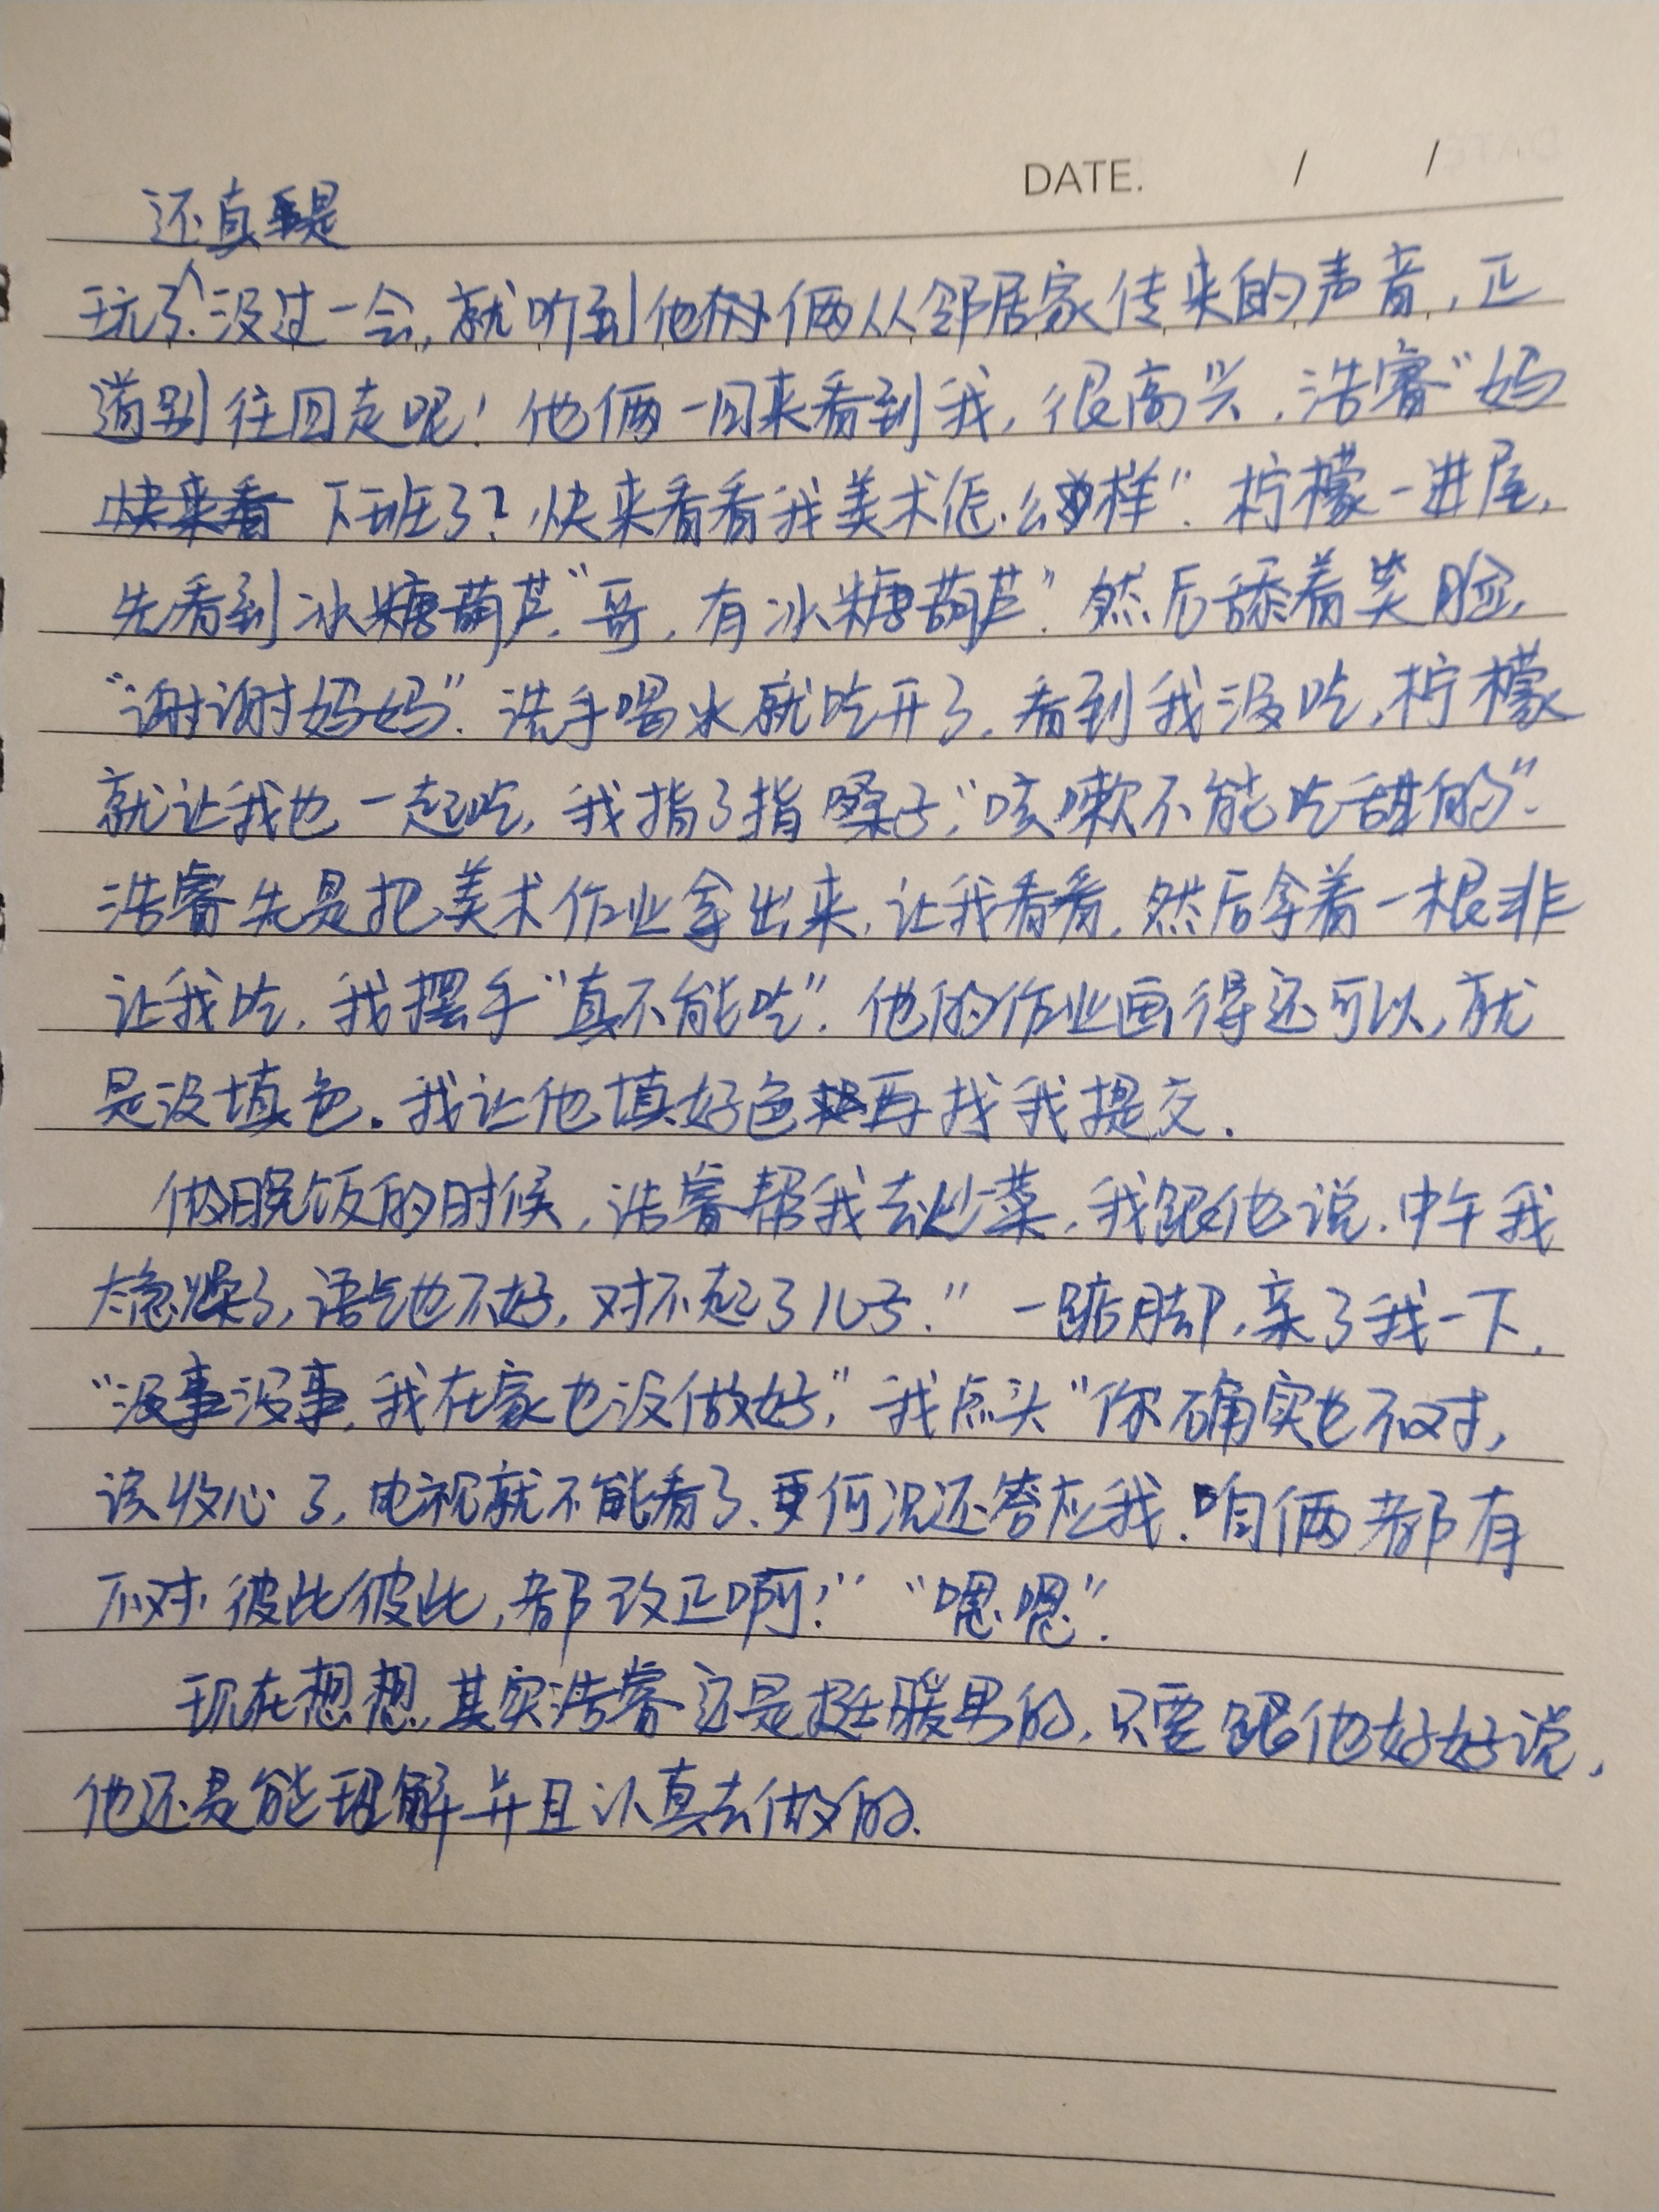 DATE. / /
还真是
玩了，没过一会，就听到他俩从邻居家传来的声音，正
道别往回走呢！他俩一回来看到我，很高兴，浩睿“妈
快来看 下班了？快来看看我美术怎么样”。柠檬一进屋，
先看到冰糖葫芦，“哥，有冰糖葫芦”。然后舔着笑脸，
“谢谢妈妈”。洗手喝水就吃开了，看到我没吃，柠檬
就让我也一起吃，我指了指嗓子，“咳嗽不能吃甜的”。
浩睿先是把美术作业拿出来，让我看看，然后拿着一根非
让我吃，我摆手“真不能吃”。他的作业画得还可以，就
是没填色。我让他填好色再找我提交。
做晚饭的时候，浩睿帮我去炒菜，我跟他说，中午我
太急燥了，语气也不好，对不起了儿子。” 一踮脚，亲了我一下，
“没事没事，我在家也没做好，”我点头“你确实也不对，
该收心了，电视就不能看了，更何况还答应我，咱俩都有
不对，彼此彼此，都改正啊！” “嗯嗯”。
现在想想，其实浩睿还是挺暖男的，只要跟他好好说，
他还是能理解并且认真去做的。